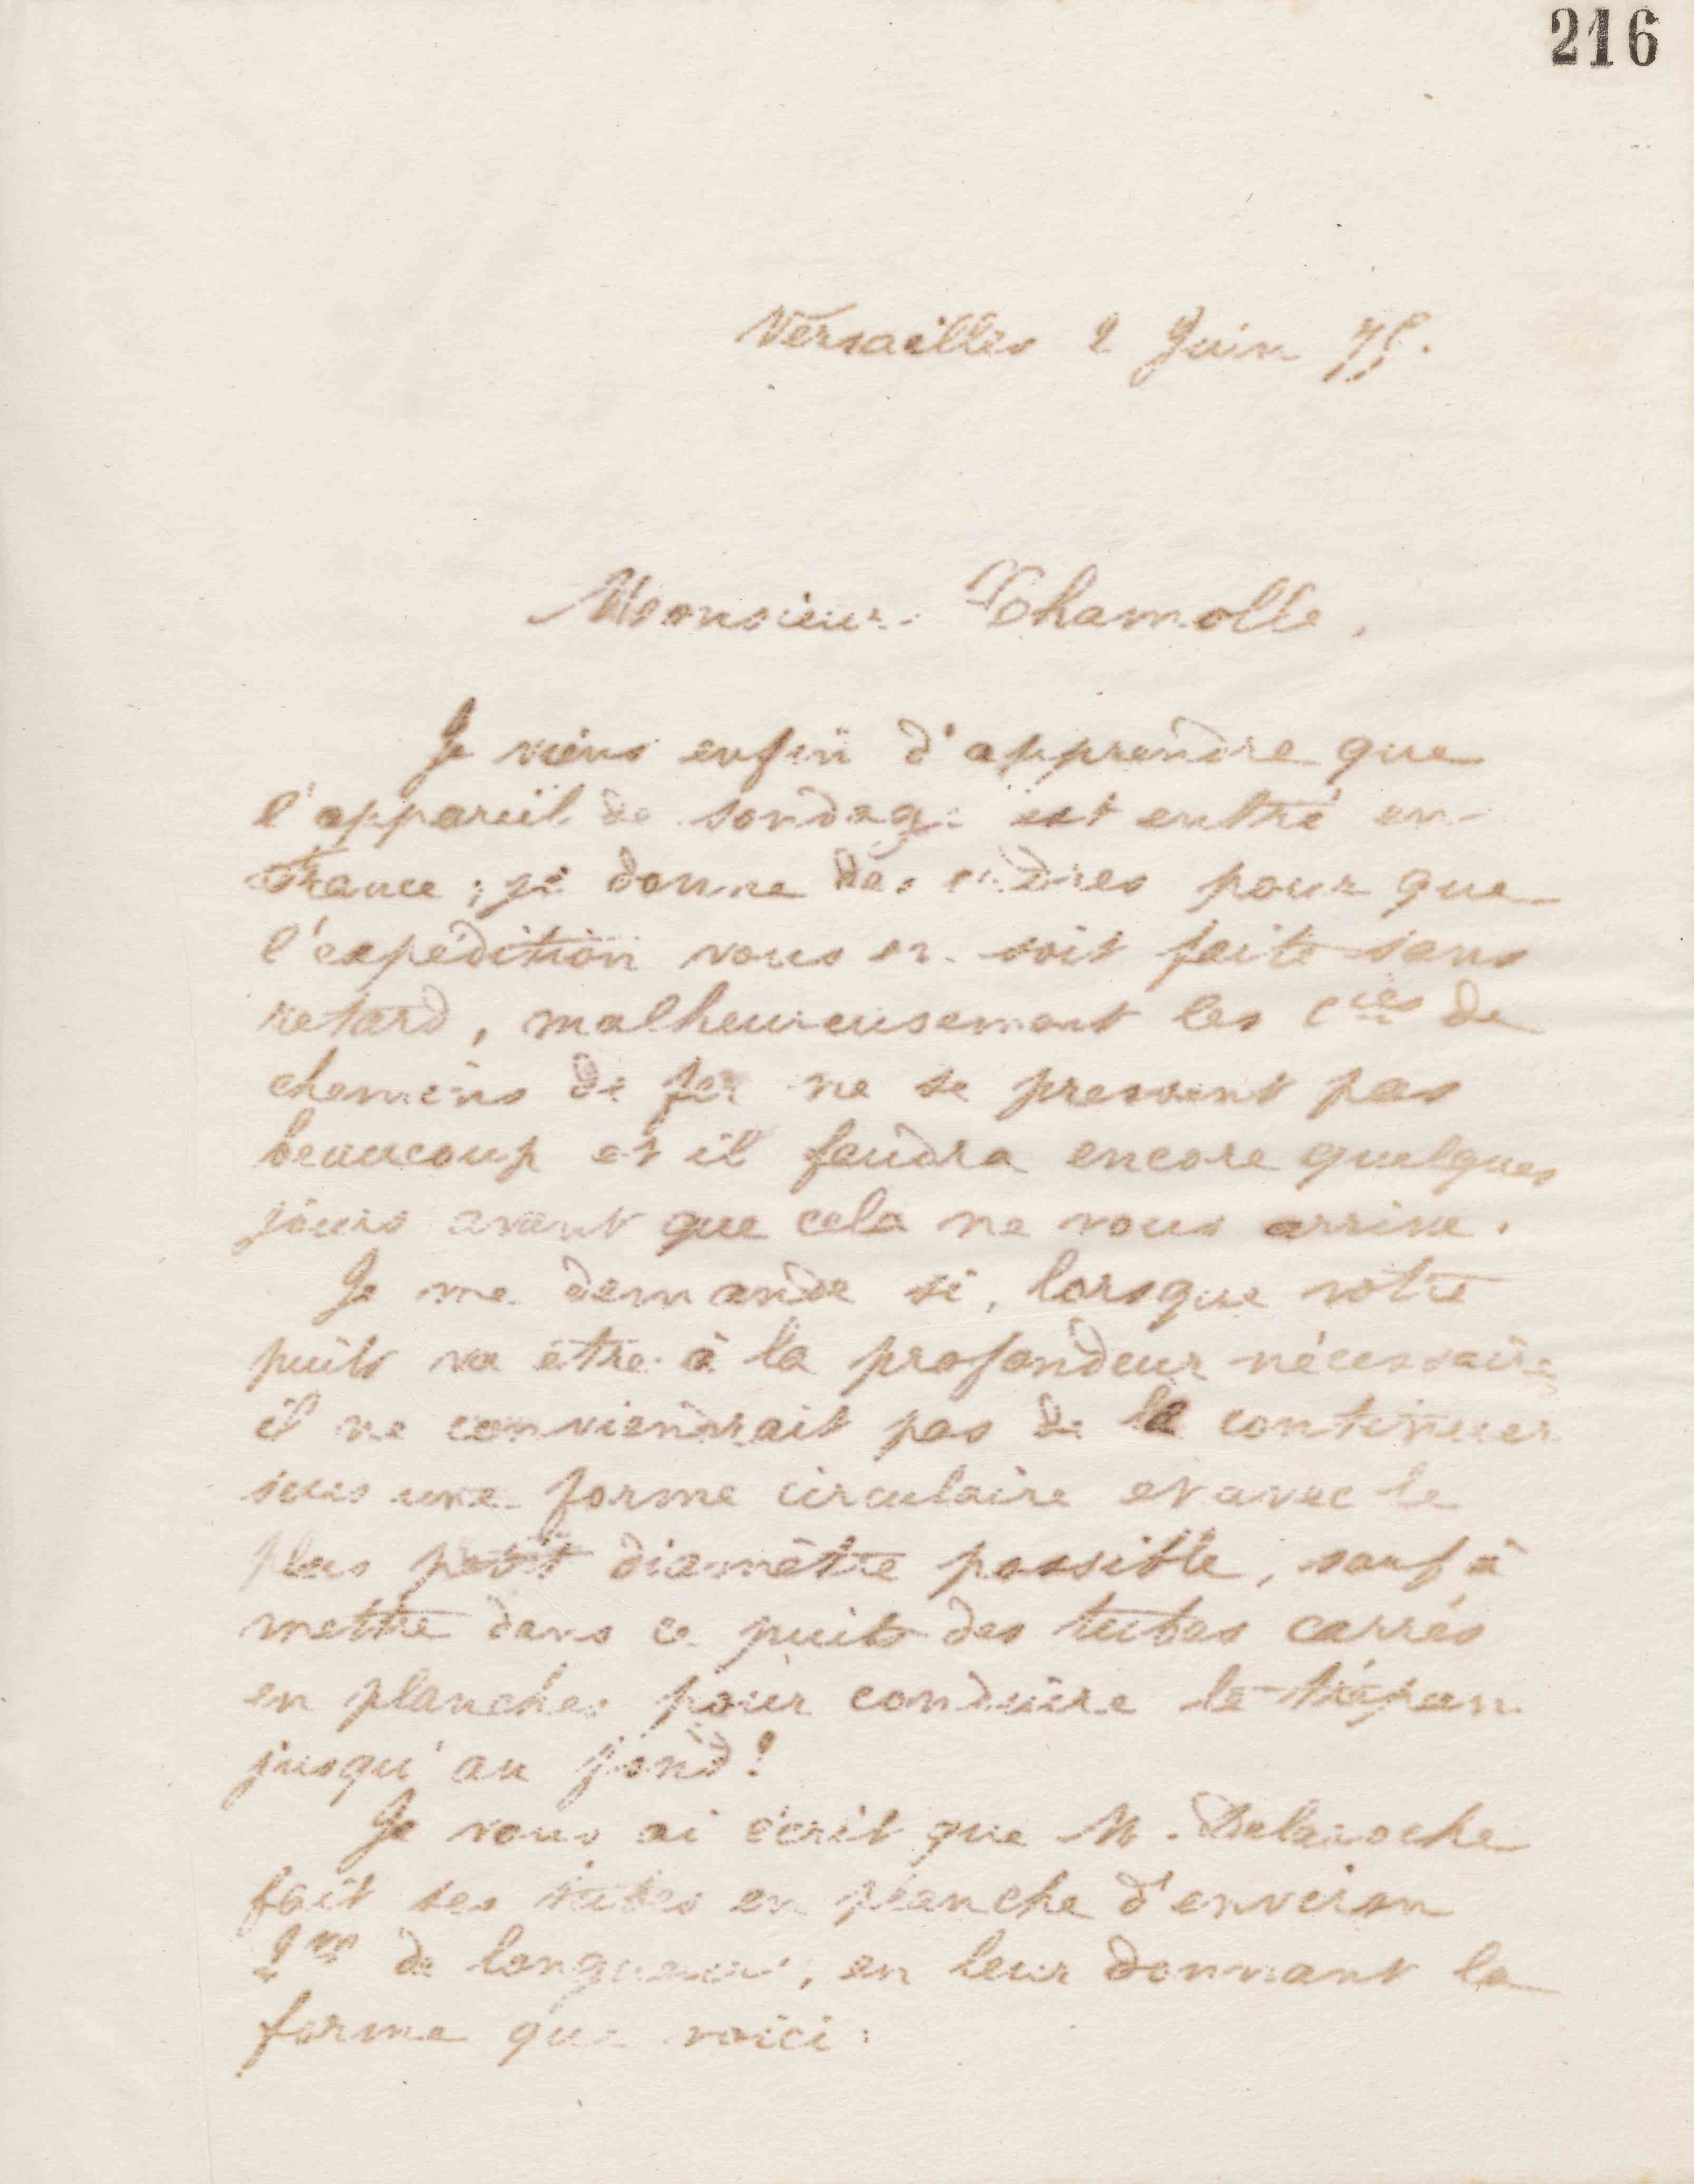 216
Versailles 2 Juin 75.
Monsieur Chamolle,
Je viens enfin d'apprendre que
l'appareil de sondage est entré en
France ; je donne des ordres pour que
l'expédition vous en soit faite sans
retard, malheureusement les Cies de
chemins de fer ne se pressent pas
beaucoup et il faudra encore quelques
jours avant que cela ne vous arrive.
Je me demande si, lorsque votre
puits va être à la profondeur nécessaire
il ne conviendrait pas de le continuer
sous une forme circulaire et avec le
plus petit diamètre possible, sauf à
mettre dans ce puits des tubes carrés
en planches pour conduire le trépan
jusqu'au fond!
Je vous ai écrit que M. Delaroche
fait ses tubes en planche d'environ
2m de longueur, en leur donnant la
forme que voici :